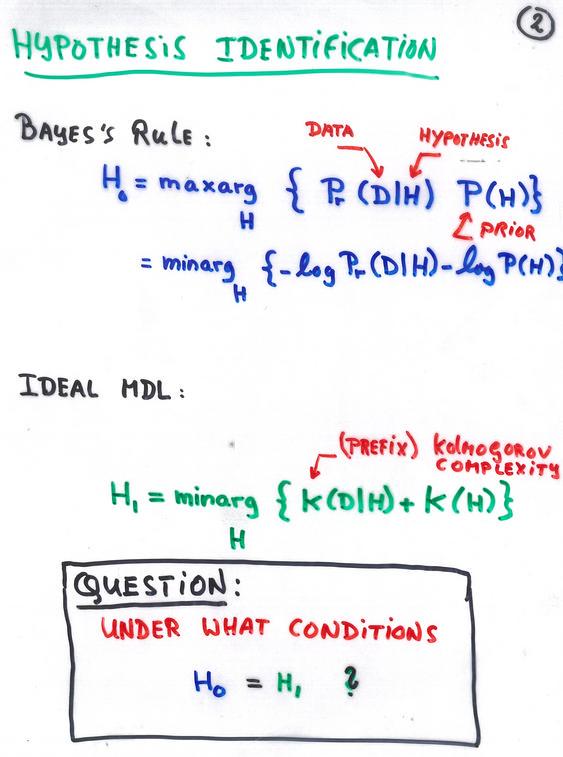 2
HYPOTHESIS IDENTIFICATION
BAYES'S RULE:
DATA HYPOTHESIS
H₀ = maxarg { Pr (D|H) P(H)}
H
PRIOR
= minarg {-log Pr (D|H) - log P(H)}
H
IDEAL MDL:
(PREFIX) KOLMOGOROV
COMPLEXITY
H₁ = minarg { K(D|H) + K(H)}
H
QUESTION:
UNDER WHAT CONDITIONS
H₀ = H₁ ?